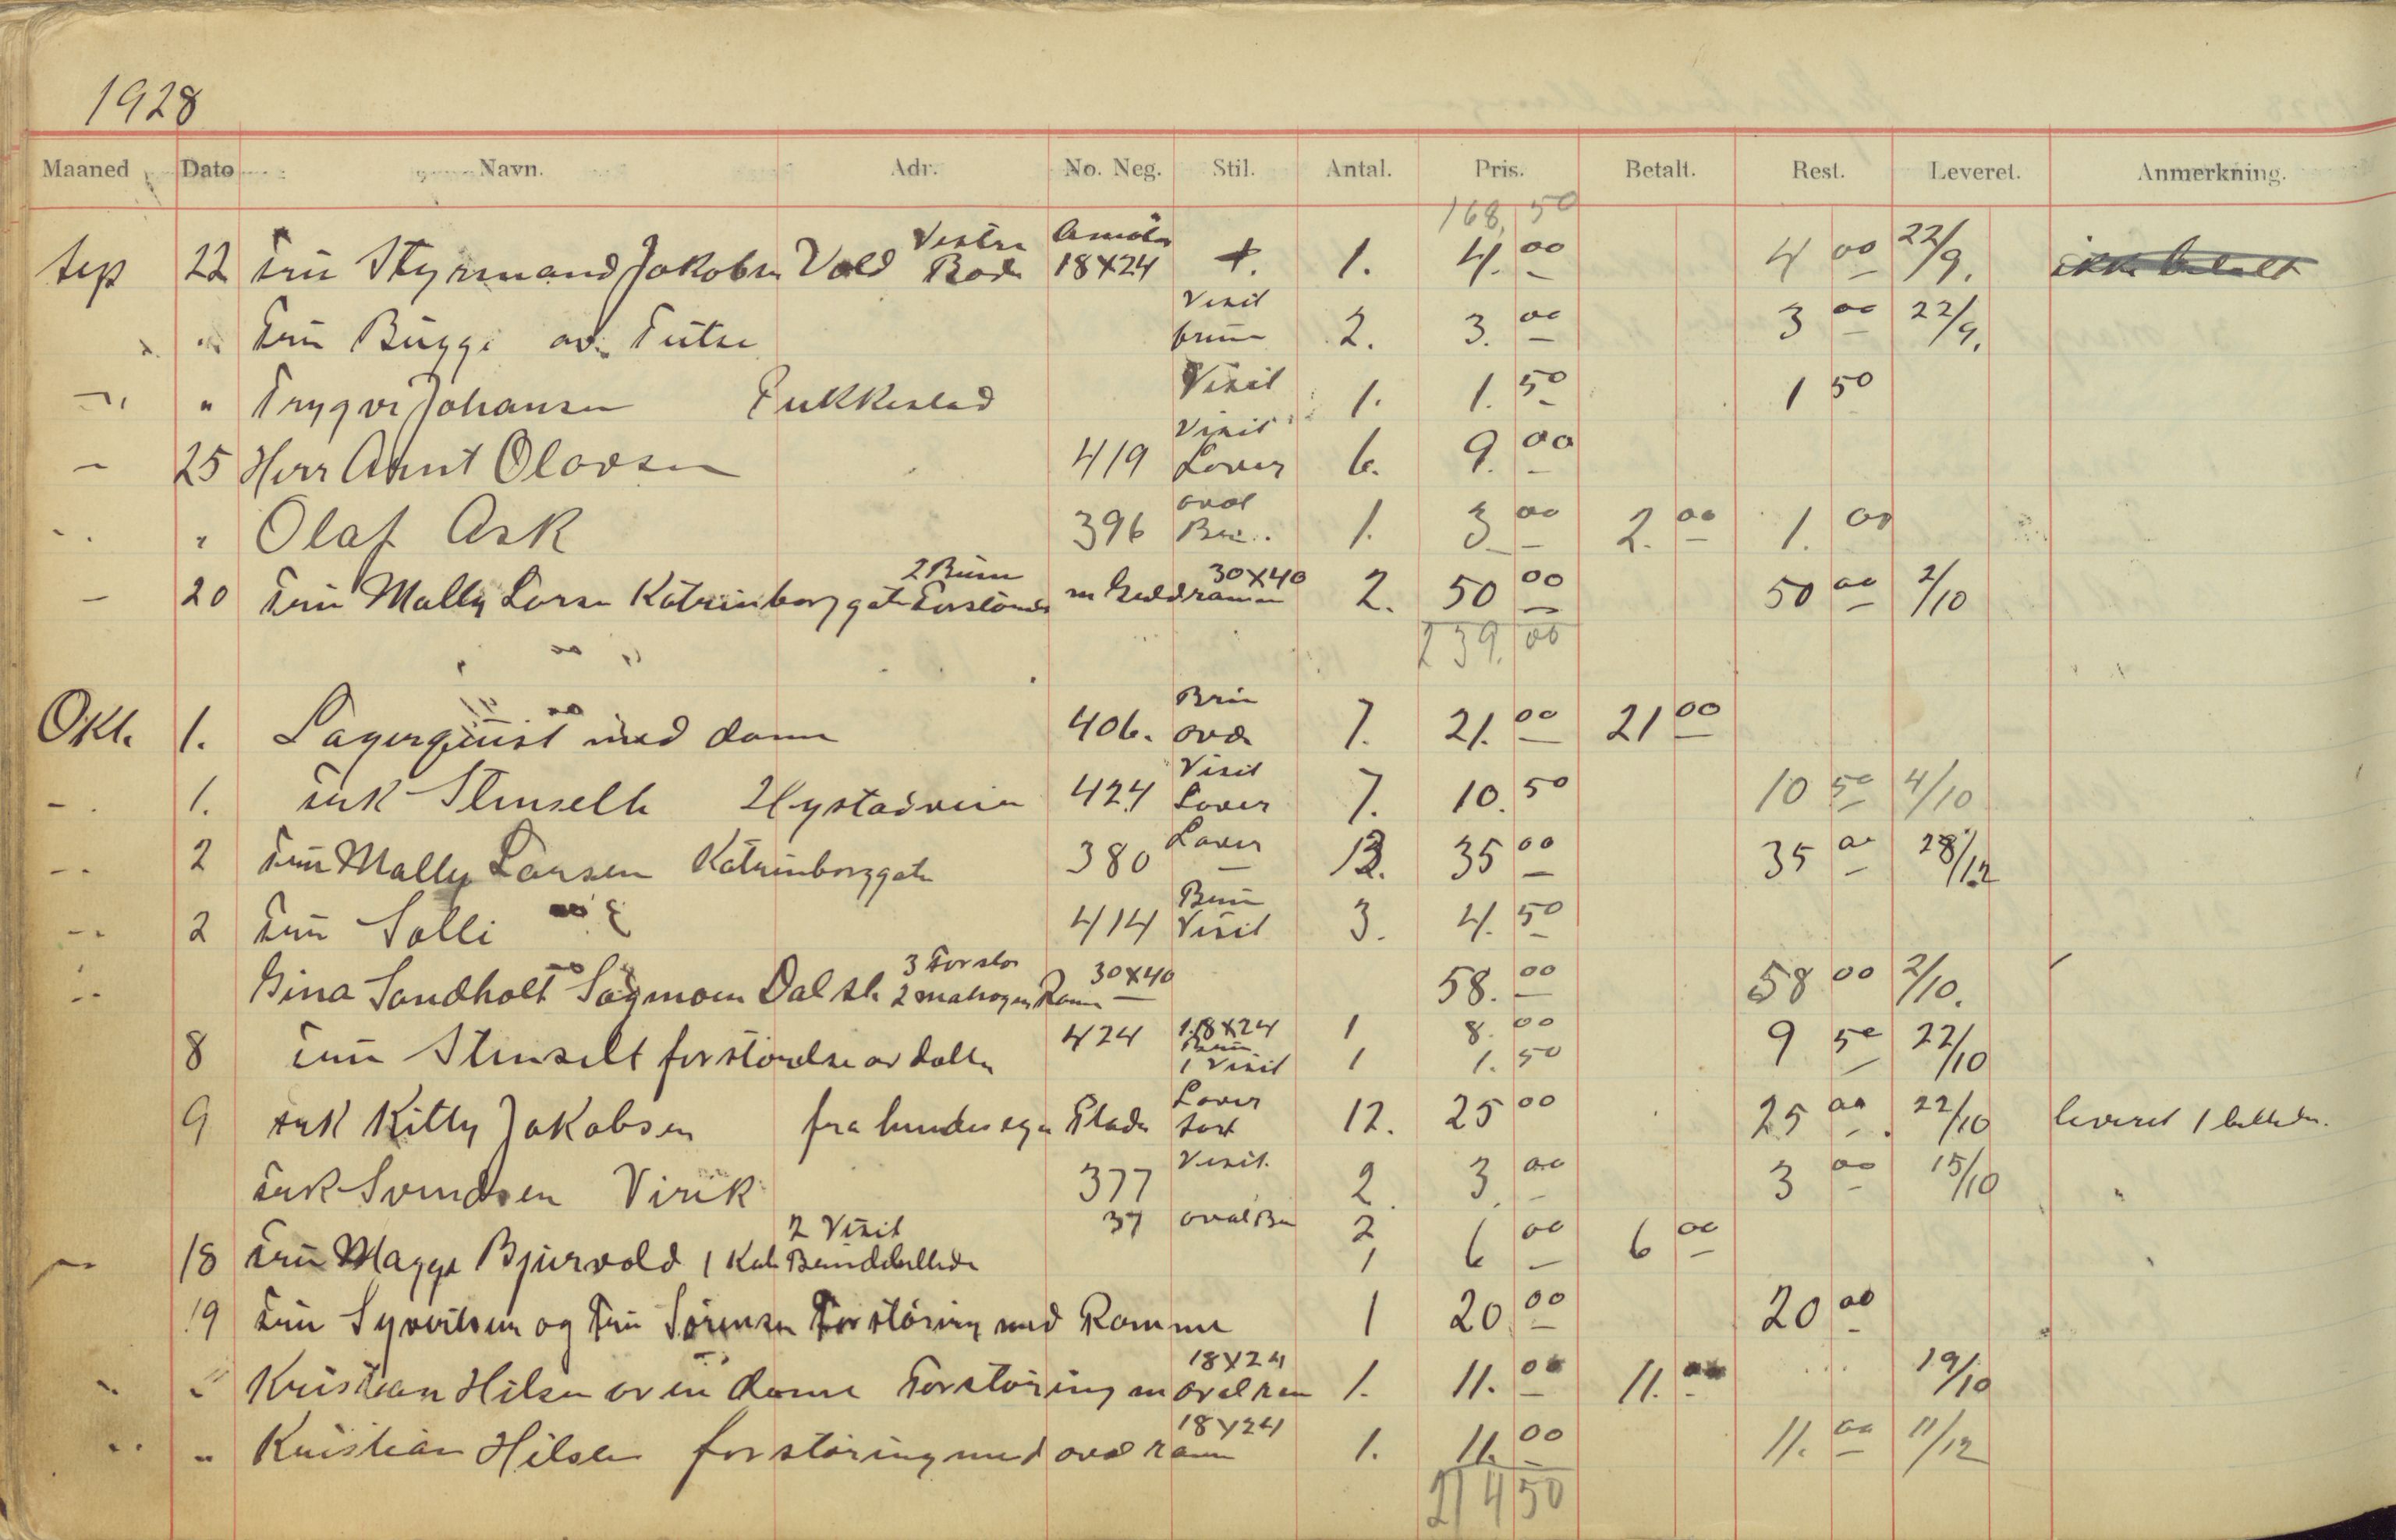 1928
Maaned Dato Navn. Adr. No. Neg. Stil. Antal. Pris. Betalt. Rest. Leveret. Anmerkning.
168,50
Vestre
sep 22 Frü Styrmand Jakobsen Vold Bode 18X24 +. 1. 4.00 4 00 22/9. ikke betalt
Visit
" Frü Bügge av 2. 3.00 3 00 22/9.
" Trygve Johansen Pukkestad Visit 1. 1.50 1 50
Visit
25 Herr Arnt Olavsen 419 Lover 6. 9.00
oval
" Olaf Ask 396 1. 3 00 2.00 1.00
30X40
20 Frü Mally Larsen 2. 50 00 50 00 2/10
239.00
Brün
Okt. 1. Lagerquist med dame 406. oval 7. 21.00 21 00
Visit
1. frk Stenselt Hystadveien 424 Lover 7. 10.50 10 50 4/10
2 Frü Mally Larsen Katrinborggate 380 Lover 13. 35 00 35 00 28/12
2 Frü Solli 414 Visit 3. 4.50
3 Forstør 30X40
Gina Sandholt Dal st. 2 mahogny Ramme 58.00 58 00 2/10.
8 Frü Stenselt forstørrelse av datter 424 18X24 1 8.00 9 50 22/10
1 Visit 1 1.50
9 frk Kitty Jakobsen fra hendes egen Plade Lover sort 12. 25 00 25 00 22/10 leveret 1 billede.
frk Svendsen Virik 377 Visit. 2 3.00 3 00 15/10 "
2 Visit 37 oval 2
18 Frü Magga Bjürvold 1 Kab 1 6 00 6 00
19 Frü Syvertsen og Frü Sørensen Forstøring med Ramme 1 20.00 20 00
18X24
" Kristian Hilsen av en dame Forstøring m oval ram 1. 11.00 11.00 19/10
18X24
" Kristian Hilsen forstøring med oval ram 1. 11.00 11.00 11/12
214 50